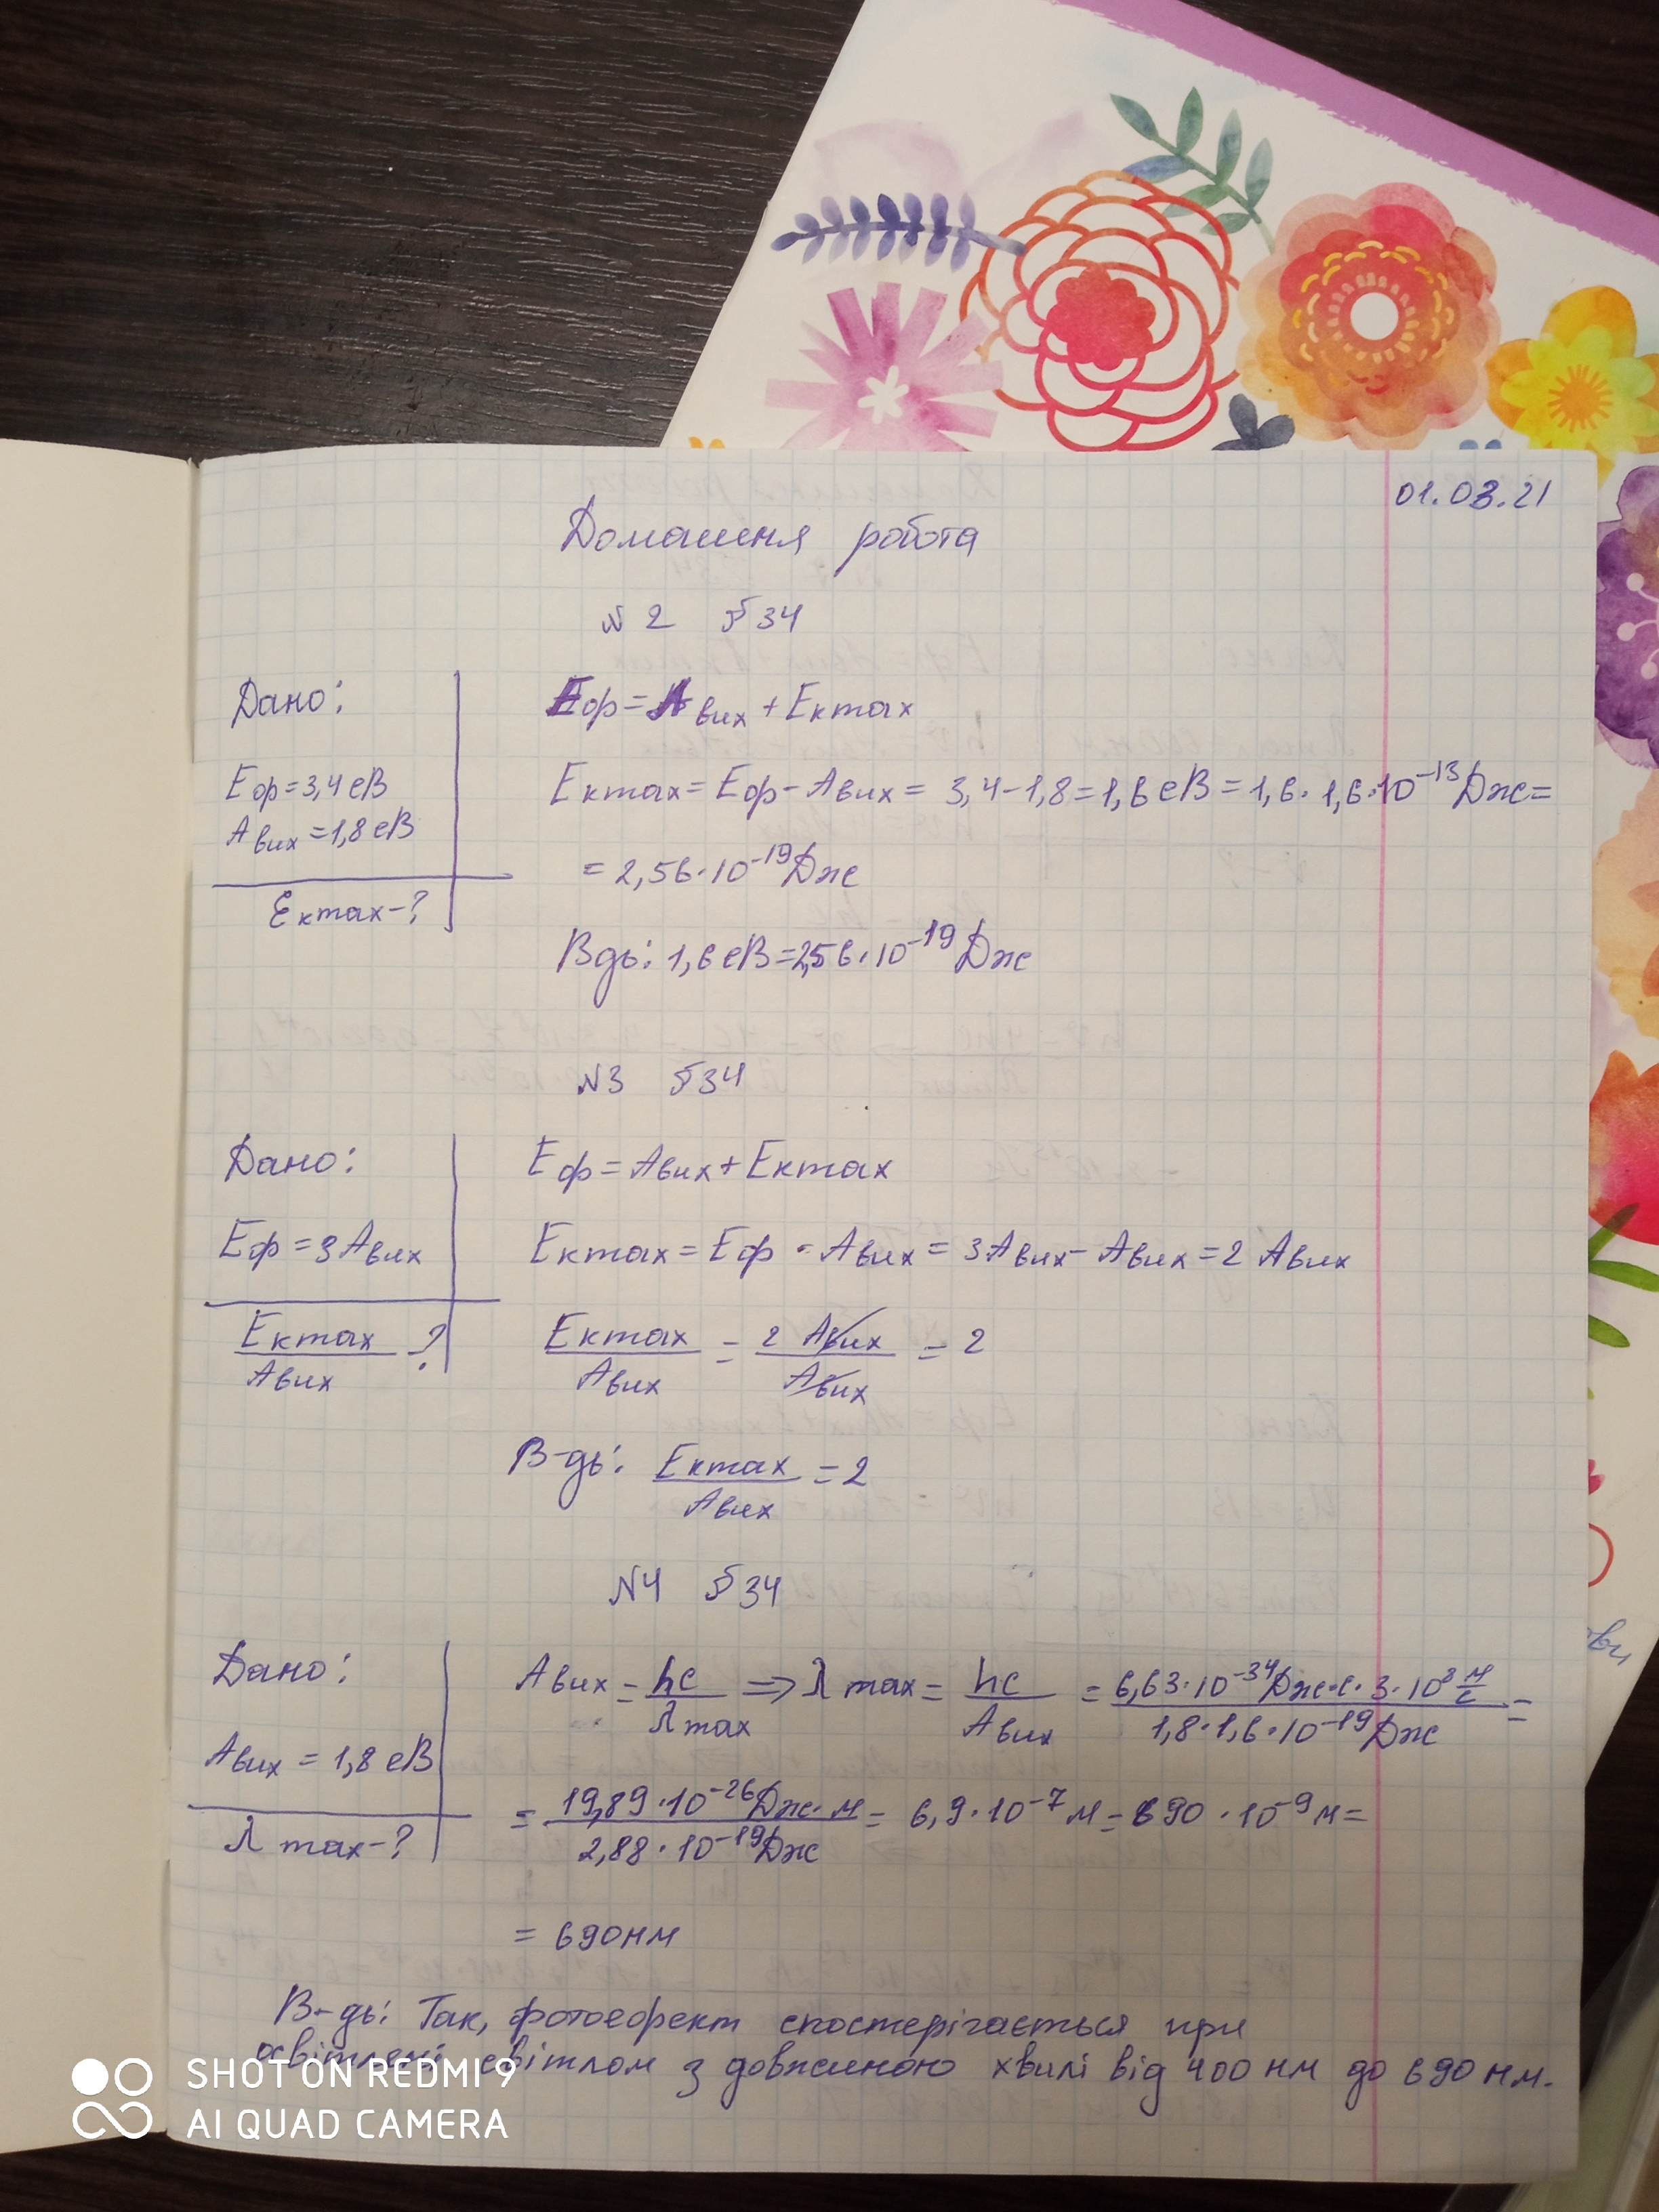 01.03.21
Домашня робота
№ 2 §34
Дано:
Eф=3,4 eB
Aвих=1,8 eB
Eкmax-?
Eф=Aвих+Eкmax
Eкmax=Eф-Aвих=3,4-1,8=1,6 eB=1,6·1,6·10⁻¹³Дж=
=2,56·10⁻¹⁹Дж
Вдь: 1,6 eB=2,56·10⁻¹⁹Дж
№3 §34
Дано:
Eф=3Aвих
Eкmax/Aвих-?
Eф=Aвих+Eкmax
Eкmax=Eф-Aвих=3Aвих-Aвих=2 Aвих
Eкmax/Aвих=2 Aвих/Aвих=2
В-дь: Eкmax/Aвих=2
№4 §34
Дано:
Aвих=1,8 eB
λ max-?
Aвих=hc/λmax=>λ max=hc/Aвих=6,63·10⁻³⁴Дж·с·3·10⁸м/с/1,8·1,6·10⁻¹⁹Дж=
=19,89·10⁻²⁶Дж·м/2,88·10⁻¹⁹Дж=6,9·10⁻⁷м=690·10⁻⁹м=
=690нм
В-дь: Так, фотоефект спостерігається при
світлом з довжиною хвилі від 400 нм до 690 нм.
SHOT ON REDMI 9
AI QUAD CAMERA